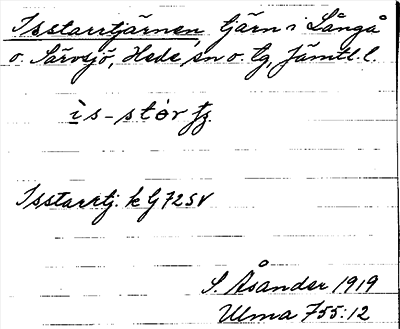 Isstarrtjärnen, tjärn i Långå
o. Särvsjö, Hede sn o. tg, Jämtl. l.
ìs-stór tj.
Isstarrtj. k G 72 SV
S. Åsander 1919
Ulma 755:12